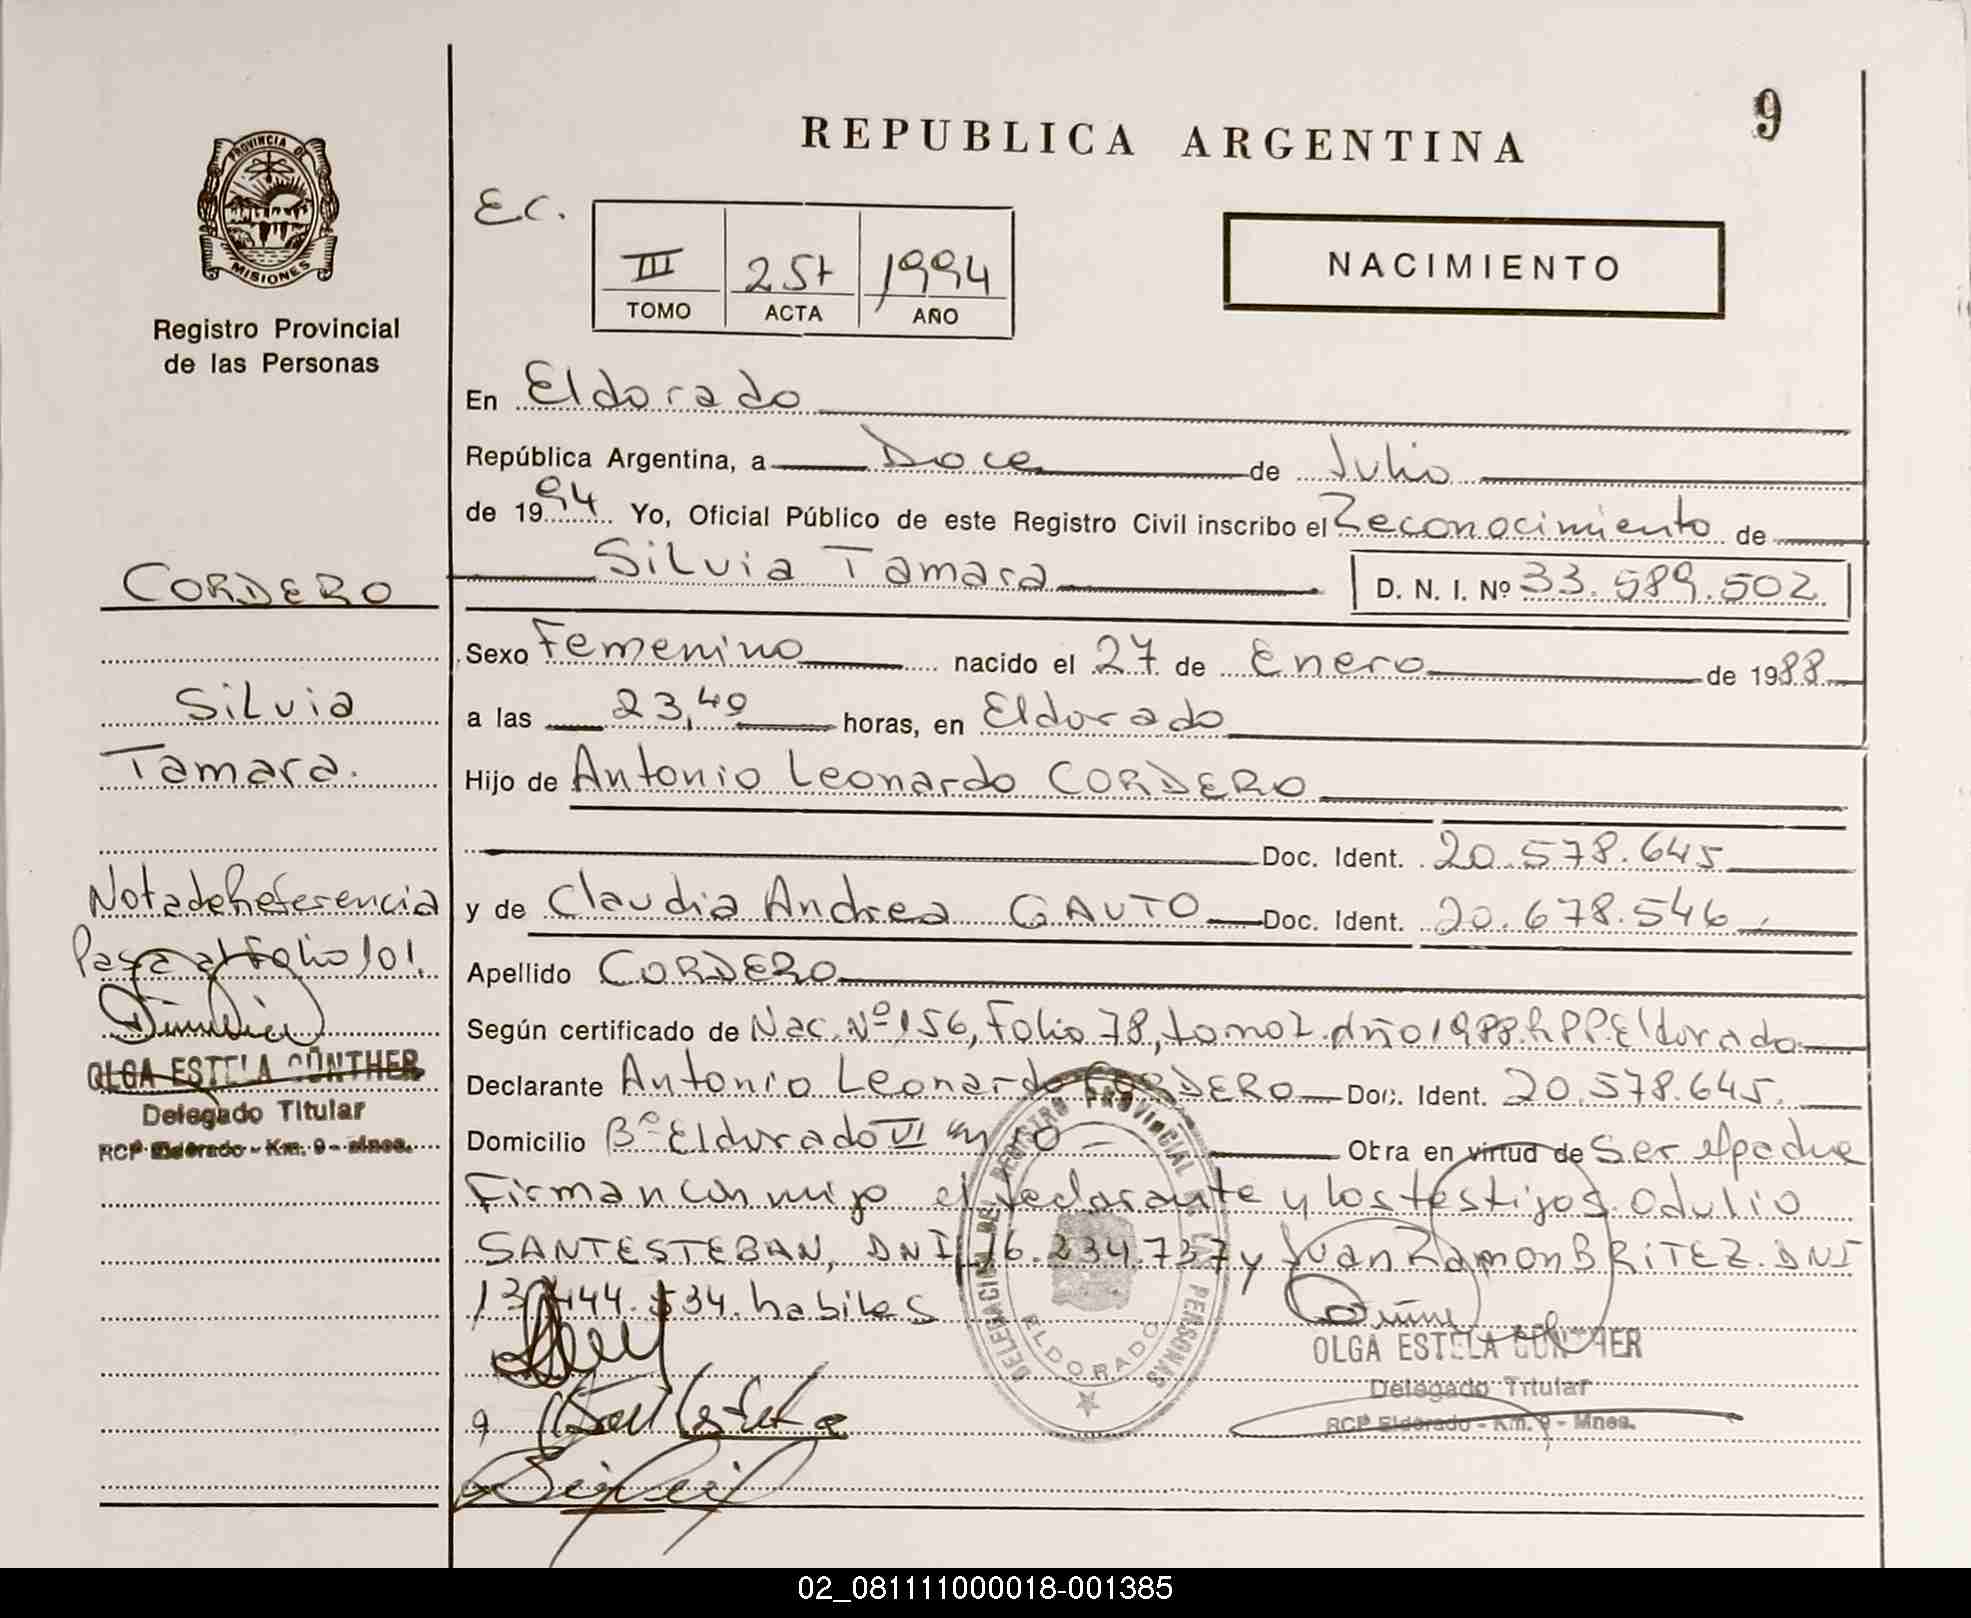 REPUBLICA ARGENTINA
9
PROVINCIA DE
MISIONES
Registro Provincial
de las Personas
Ec.
III 257 1994
TOMO ACTA AÑO
NACIMIENTO
En Eldorado
República Argentina, a Doce de Julio
de 1994 Yo, Oficial Público de este Registro Civil inscribo el Reconocimiento de
Silvia Tamara D. N. I. Nº 33.589.502
CORDERO
Silvia
Tamara.
Sexo Femenino nacido el 27 de Enero de 1988
a las 23,40 horas, en Eldorado
Hijo de Antonio Leonardo CORDERO
Doc. Ident. 20.578.645
y de Claudia Andrea GAUTO Doc. Ident. 20.678.546
Apellido CORDERO
Nota de Referencia
Pasa al Folio 101.
OLGA ESTELA GÜNTHER
Delegado Titular
RCP Eldorado - Km. 9 - Mnes.
Según certificado de Nac. Nº 156, Folio 78, tomo I. año 1988. RPP. Eldorado
Declarante Antonio Leonardo CORDERO Doc. Ident. 20.578.645.
Domicilio Bº Eldorado VI Otra en virtud de Ser el padre
Firman con migo el declarante y los testigos Odulio
SANTESTEBAN, DNI 16.234.737 y Juan Ramon BRITEZ. DNI
444.534. habiles
DELEGACION DEL REGISTRO PROVINCIAL DE LAS PERSONAS
ELDORADO
OLGA ESTELA GÜNTHER
Delegado Titular
RCP Eldorado - Km. 9 - Mnes.
02_081111000018-001385